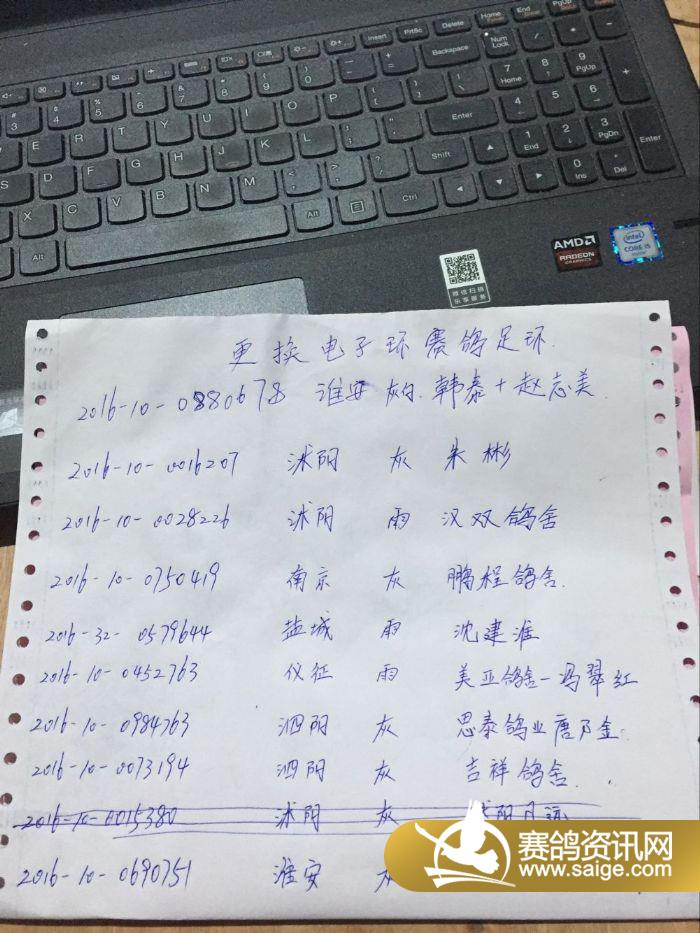 更换电子环赛鸽足环.
2016-10-0880678 淮安 灰白. 韩泰+赵志美
2016-10-0016207 沭阳 灰 朱彬
2016-10-0028226 沭阳 雨 汉双鸽舍
2016-10-0750419 南京 灰 鹏程鸽舍.
2016-32-0579644 盐城 雨 沈建淮
2016-10-0452763 仪征 雨 美亚鸽舍-冯翠红
2016-10-0984763 泗阳 灰 思泰鸽业唐 金
2016-10-0073194 泗阳 灰 吉祥鸽舍.
2016-10-0015380 沭阳 灰 沭阳
2016-10-0690751 淮安 灰
AMD
RADEON
GRAPHICS
intel
CORE i5
微信扫码
乐享服务
赛鸽资讯网
www.saige.com
Insert PrtSc Delete Home End PgUp PgDn
Backspace Num Lock
7 Home 8 9 PgUp +
Q W E R T Y U I O P
Enter 4 5 6
S D F G H J K L
Shift 1 End 2 3 PgDn Enter
X C V B N M
0 Ins . Del
Alt Alt Ctrl